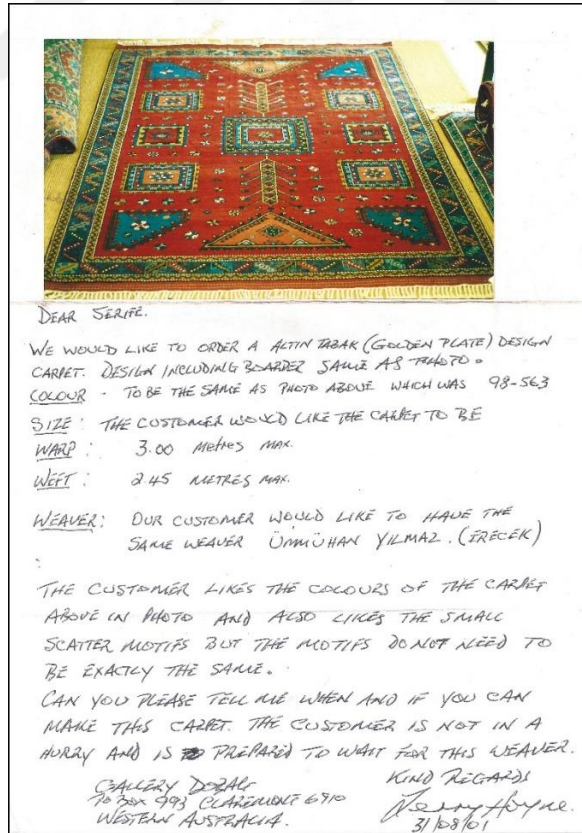 DEAR SERIFE.
WE WOULD LIKE TO ORDER A ALTIN TABAK (GOLDEN PLATE) DESIGN
CARPET. DESIGN INCLUDING BOARDER SAME AS PHOTO.
COLOUR - TO BE THE SAME AS PHOTO ABOVE WHICH WAS 98-563
SIZE: THE CUSTOMER WOULD LIKE THE CARPET TO BE
WARP: 3.00 Metres MAX.
WEFT: 2.45 METRES MAX.
WEAVER: OUR CUSTOMER WOULD LIKE TO HAVE THE
SAME WEAVER ÜMMÜHAN YILMAZ. (ERECEK)
:
THE CUSTOMER LIKES THE COLOURS OF THE CARPET
ABOVE IN PHOTO AND ALSO LIKES THE SMALL
SCATTER MOTIFS BUT THE MOTIFS DO NOT NEED TO
BE EXACTLY THE SAME.
CAN YOU PLEASE TELL ME WHEN AND IF YOU CAN
MAKE THIS CARPET. THE CUSTOMER IS NOT IN A
HURRY AND IS PREPARED TO WAIT FOR THIS WEAVER.
GALLERY DOBAG KIND REGARDS
PO BOX 993 CLAREMONT 6910
WESTERN AUSTRALIA. 31/08/01